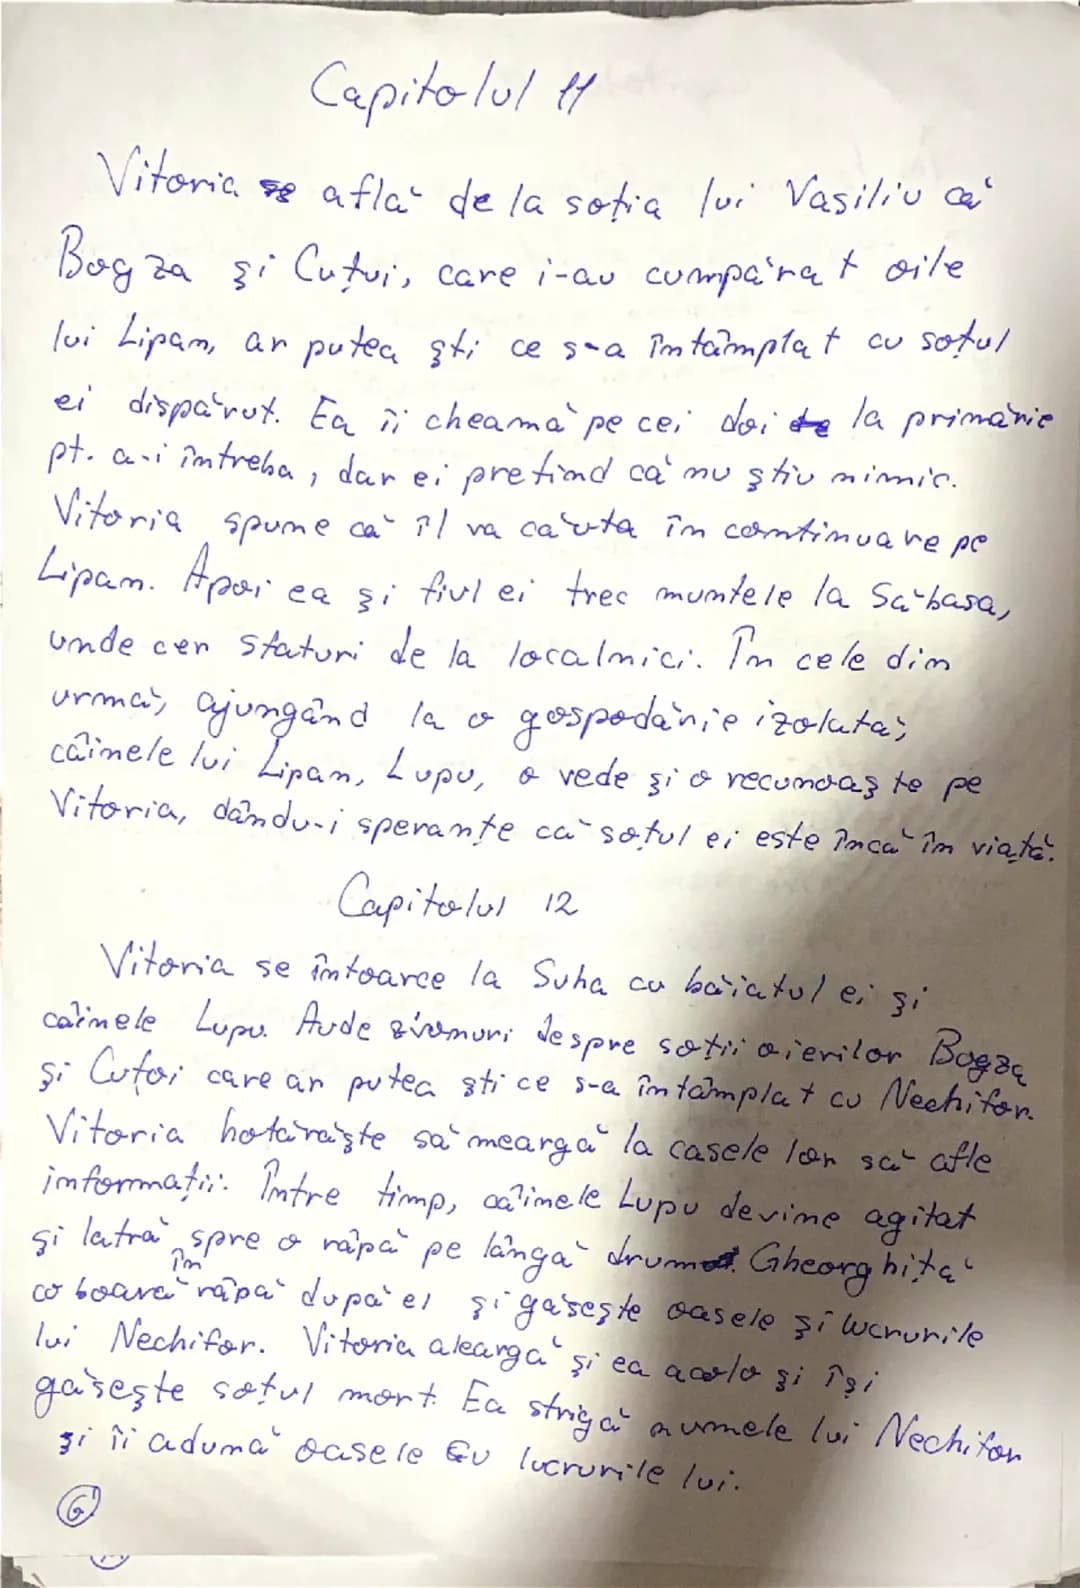 Capitolul 11
Vitoria află de la soția lui Vasiliu că
Bogza și Cuțui, care i-au cumpărat oile
lui Lipan, ar putea ști ce s-a întâmplat cu soțul
ei dispărut. Ea îi cheamă pe cei doi la primărie
pt. a-i întreba, dar ei pretind că nu știu nimic.
Vitoria spune că îl va căuta în continuare pe
Lipan. Apoi ea și fiul ei trec muntele la Sabasa,
unde cer sfaturi de la localnici. În cele din
urmă, ajungând la o gospodărie izolată,
câinele lui Lipan, Lupu, o vede și o recunoaște pe
Vitoria, dându-i speranțe că soțul ei este încă în viață.
Capitolul 12
Vitoria se întoarce la Suha cu băiatul ei și
câinele Lupu. Aude zvonuri despre soții oierilor Bogza
și Cuțoi care ar putea ști ce s-a întâmplat cu Nechifor.
Vitoria hotărăște să meargă la casele lor să afle
informații. Între timp, câinele Lupu devine agitat
și latră spre o râpă pe lângă drum. Gheorghiță
coboară în râpă după el și găsește oasele și lucrurile
lui Nechifor. Vitoria aleargă și ea acolo și își
găsește soțul mort. Ea strigă numele lui Nechifor
și îi adună oasele cu lucrurile lui.